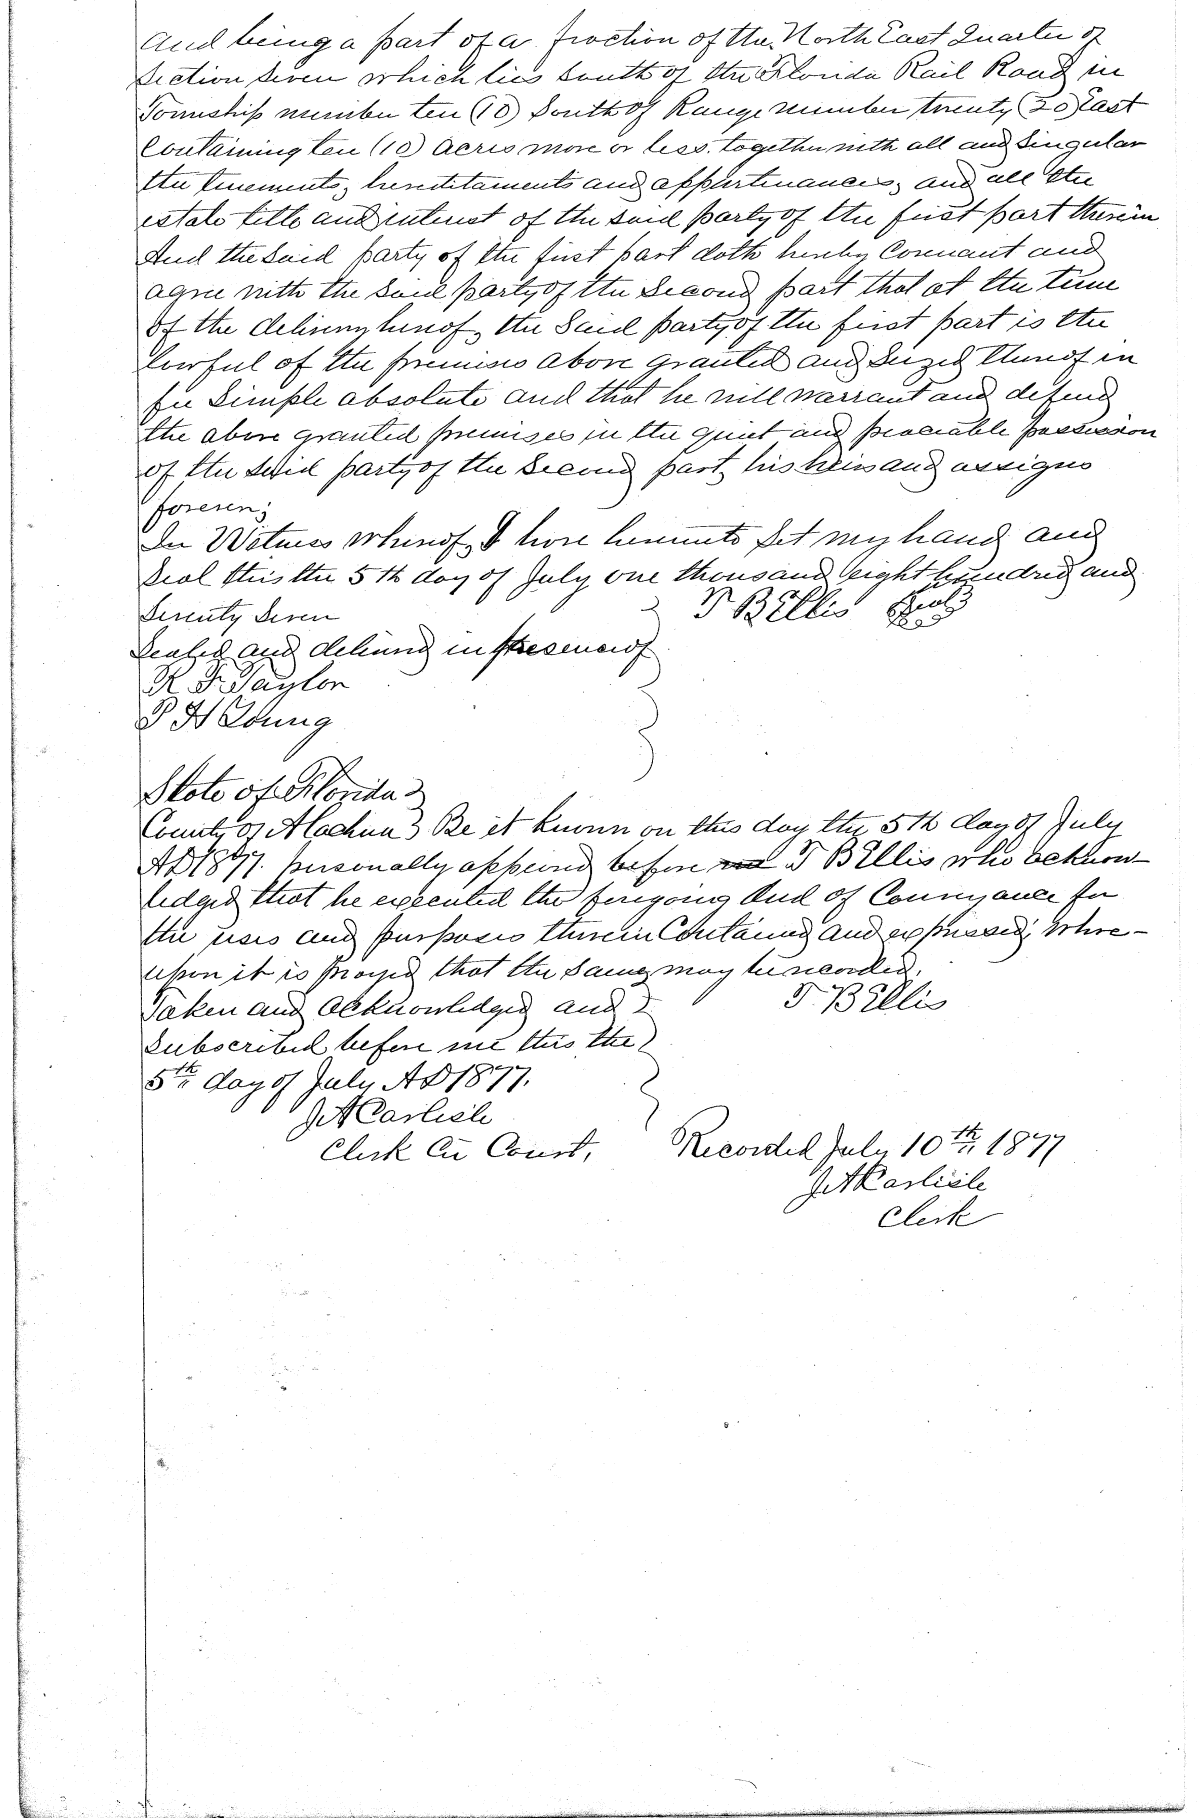 And being a part of a fraction of the North East Quarter of
Section Seven which lies South of the Florida Rail Road in
Township number ten (10) South of Range number twenty (20) East
Containing ten (10) acres more or less. together with all and Singular
the tenements, hereditaments and appurtenances, and all the
estate title and interest of the said party of the first part therein
And the said party of the first part doth hereby Covenant and
agree with the said party of the Second part that at the time
of the delivery hereof, the Said party of the first part is the
lawful of the premises above granted and Seized thereof in
fee Simple absolute and that he will warrant and defend
the above granted premises in the quiet and peaceable possession
of the said party of the Second part, his heirs and assigns
forever;
In Witness whereof, I have hereunto Set my hand and
Seal this the 5th day of July one thousand eight hundred and
Seventy Seven T B Ellis Seal
Sealed and delivered in presence of
R F Taylor
P H Young
State of Florida
County of Alachua Be it known on this day the 5th day of July
AD 1877. personally appeared before T B Ellis who acknow-
ledged that he executed the foregoing deed of Conveyance for
the uses and purposes therein Contained and expressed; where-
upon it is prayed that the Same may be recorded.
Taken and acknowledged and T. B Ellis
Subscribed before me this the
5th day of July AD 1877.
J A Carlisle
Clerk Cir Court, Recorded July 10th, 1877
J A Carlisle
Clerk